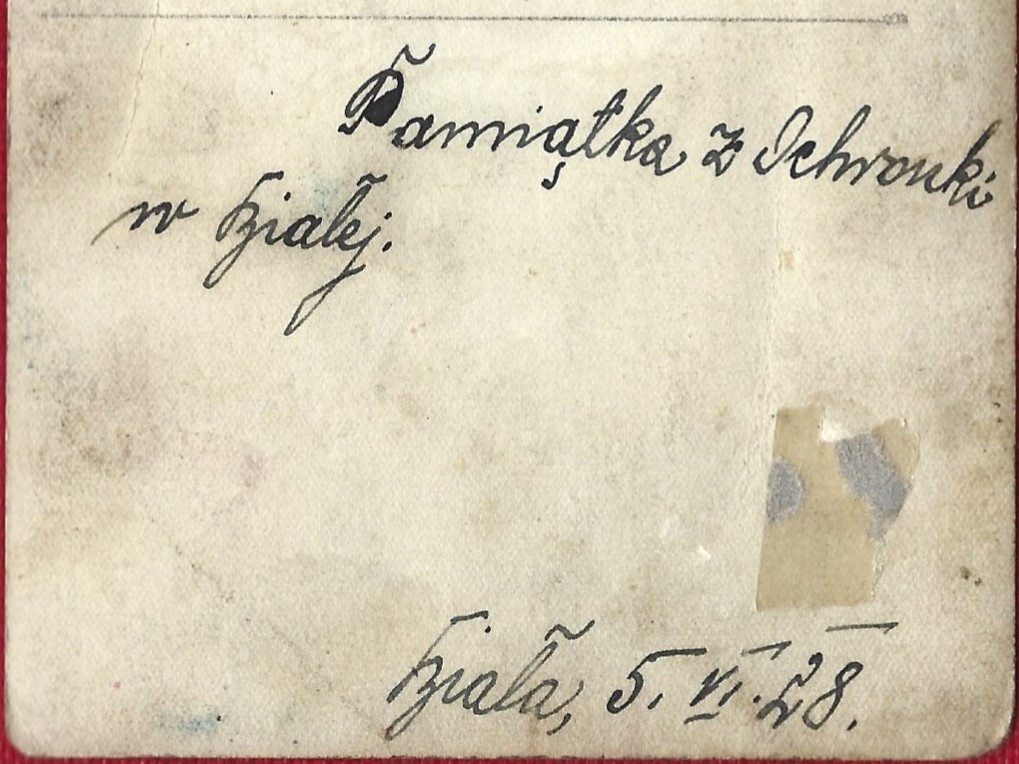 Pamiątka z Ochronki
w Białej.
Biała, 5. VI. 28.